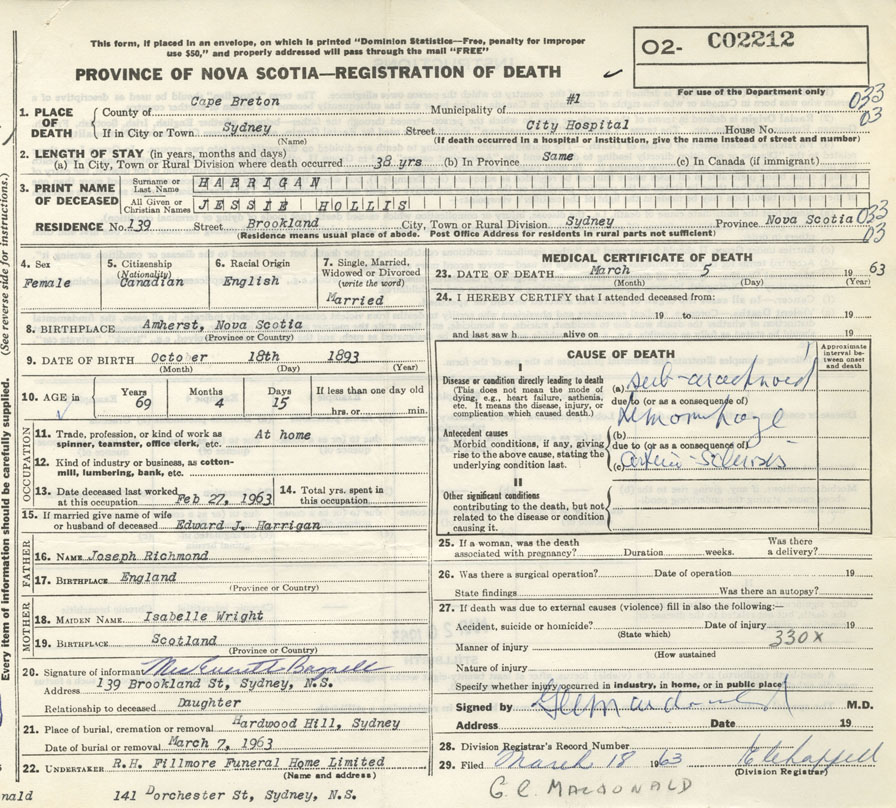 This form, if placed in an envelope, on which is printed "Dominion Statistics—Free, penalty for improper
use $50," and properly addressed will pass through the mail "FREE"
O2- CO2212
PROVINCE OF NOVA SCOTIA—REGISTRATION OF DEATH
For use of the Department only
033
03
1. PLACE OF DEATH
County of Cape Breton Municipality of #1
If in City or Town Sydney Street City Hospital House No.
(Name) (If death occurred in a hospital or institution, give the name instead of street and number)
2. LENGTH OF STAY (in years, months and days)
(a) In City, Town or Rural Division where death occurred 38 yrs (b) In Province Same (c) In Canada (if immigrant)
3. PRINT NAME OF DECEASED
Surname or Last Name HARRIGAN
All Given or Christian Names JESSIE HOLLIS
RESIDENCE No. 139 Street Brookland City, Town or Rural Division Sydney Province Nova Scotia 033
03
(Residence means usual place of abode. Post Office Address for residents in rural parts not sufficient)
(See reverse side for instructions.)
Every item of information should be carefully supplied.
4. Sex
Female
5. Citizenship
(Nationality)
Canadian
6. Racial Origin
English
7. Single, Married,
Widowed or Divorced
(write the word)
Married
8. BIRTHPLACE Amherst, Nova Scotia
(Province or Country)
9. DATE OF BIRTH Octo er 18th 1893
(Month) (Day) (Year)
10. AGE in
Years
69
Months
4
Days
15
If less than one day old
hrs. or min.
OCCUPATION
11. Trade, profession, or kind of work as At home
spinner, teamster, office clerk, etc.
12. Kind of industry or business, as cotton-
mill, lumbering, bank, etc.
13. Date deceased last worked
at this occupation Feb 27, 1963
14. Total yrs. spent in
this occupation
15. If married give name of wife
or husband of deceased Edward J. Harrigan
FATHER
16. NAME Joseph Richmond
17. BIRTHPLACE England
(Province or Country)
MOTHER
18. MAIDEN NAME Isabelle Wright
19. BIRTHPLACE Scotland
(Province or Country)
20. Signature of informant Mrs Bagnell
Address 139 Brookland St, Sydney, N.S.
Relationship to deceased Daughter
21. Place of burial, cremation or removal Hardwood Hill, Sydney
Date of burial or removal March 7, 1963
22. UNDERTAKER R.H. Fillmore Funeral Home Limited
(Name and address)
nald
141 Dorchester St, Sydney, N.S.
MEDICAL CERTIFICATE OF DEATH
23. DATE OF DEATH March 5 1963
(Month) (Day) (Year)
24. I HEREBY CERTIFY that I attended deceased from:
19 to 19
and last saw h alive on 19
CAUSE OF DEATH
Approximate interval between onset and death
I
Disease or condition directly leading to death
(This does not mean the mode of
dying, e.g., heart failure, asthenia,
etc. It means the disease, injury, or
complication which caused death.)
(a) sub-arachnoid
due to (or as a consequence of)
hemorrhage
Antecedent causes
Morbid conditions, if any, giving
rise to the above cause, stating the
underlying condition last.
(b)
due to (or as a consequence of)
(c) arterio-sclerosis
II
Other significant conditions
contributing to the death, but not
related to the disease or condition
causing it.
25. If a woman, was the death
associated with pregnancy? Duration weeks. Was there
a delivery?
26. Was there a surgical operation? Date of operation 19
State findings Was there an autopsy?
27. If death was due to external causes (violence) fill in also the following:—
Accident, suicide or homicide? Date of injury 19
(State which) 330x
Manner of injury
(How sustained)
Nature of injury
Specify whether injury occurred in industry, in home, or in public place
Signed by M.D.
Address Date 19
28. Division Registrar's Record Number
29. Filed March 18 1963
(Division Registrar)
G.C. MACDONALD